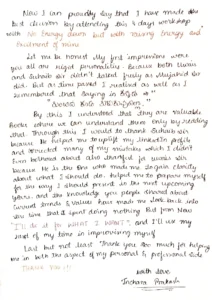 Now I can proudly say that I have made the
best decision by attending this 3 days workshop
with No Energy down but with raising Energy and
excitement of mine
Let me be honest My first impressions were
you all are rigid personalities. Because both
Suhaib sir didn't talked freely as Mujahid sir
did. But as time passed I realized as well as I
remembered that saying in
By this I understood that they are valuable
Books where we can understand them only by reading
that through this I would to thank Suhaib sir
because He helped me to uplift my linkedIn profile
and corrected many of my mistakes which I didn't
even bothered about also thankful for
because He is the one who made me
about what I should do, helped me to prepare myself
for the way I should present in the next upcoming
years. and the knowledge you people shared about
Current trends & values have made me look back into
the time that I spent doing nothing. But from Now
"I'll do it for what I want", and I'll use my
most of my time in improvising myself
Last but not least Thank you so much for helping
me in with the aspect of my personal & professional side
Thank you!!
with love
Inchara Prakash